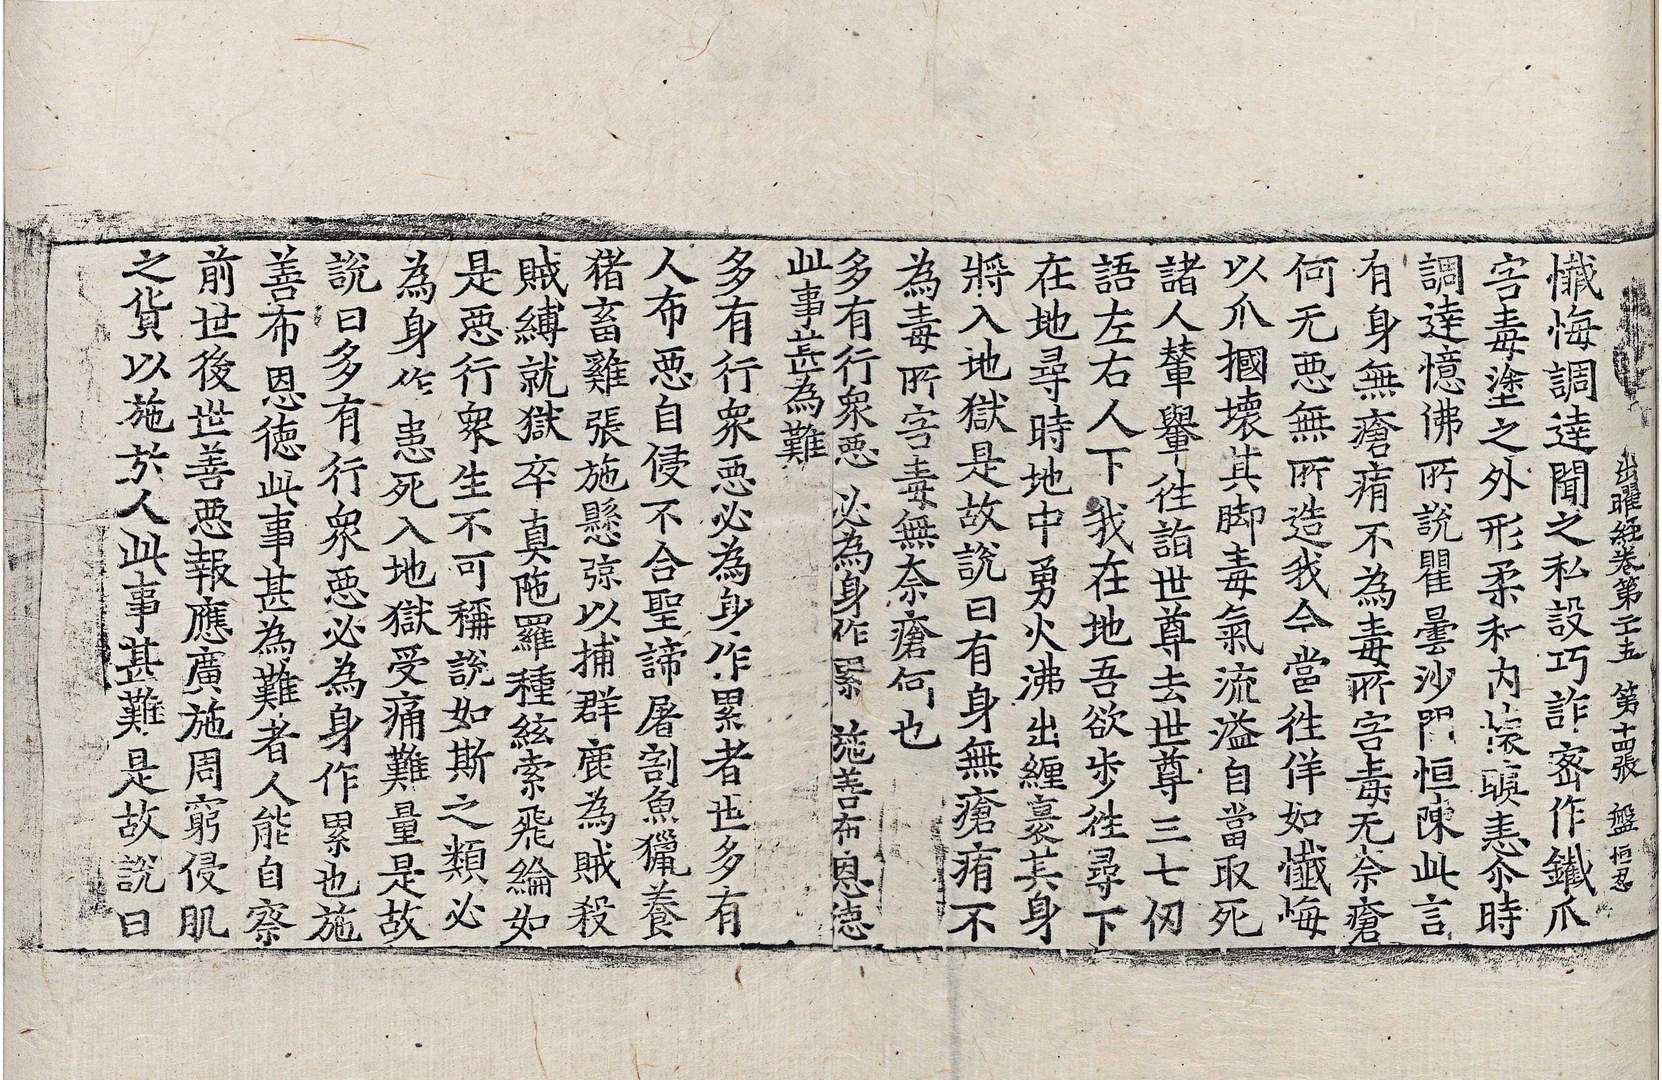 出曜経卷第二十五 第十四張 盤 恒忍
懺悔調逹聞之私設巧詐宻作鐵爪
害毒塗之外形柔和内懐瞋恚尒時
調逹憶佛所說瞿曇沙門恒陳此言
有身無瘡痏不為毒所害毒无奈瘡
何无惡無所造我今當徃佯如懺悔
以爪摑壊其脚毒氣流溢自當取死
諸人輦轝徃詣世尊去世尊三七仞
語左右人下我在地吾欲步徃尋下
在地尋時地中勇火沸出纏裹其身
將入地獄是故說曰有身無瘡痏不
為毒所害毒無奈瘡何也
多有行衆惡 必為身作累 施善布恩德
此事甚為難
多有行衆惡必為身作累者世多有
人布惡自侵不合聖諦屠割魚獵養
猪畜雞張施懸弶以捕群鹿為賊殺
賊縛就獄卒真陁羅種絃索飛綸如
是惡行衆生不可稱說如斯之類必
為身作恚死入地獄受痛難量是故
說曰多有行衆惡必為身作累也施
善布恩徳此事甚為難者人能自察
前世後世善惡報應廣施周窮侵肌
之貨以施於人此事甚難是故說曰